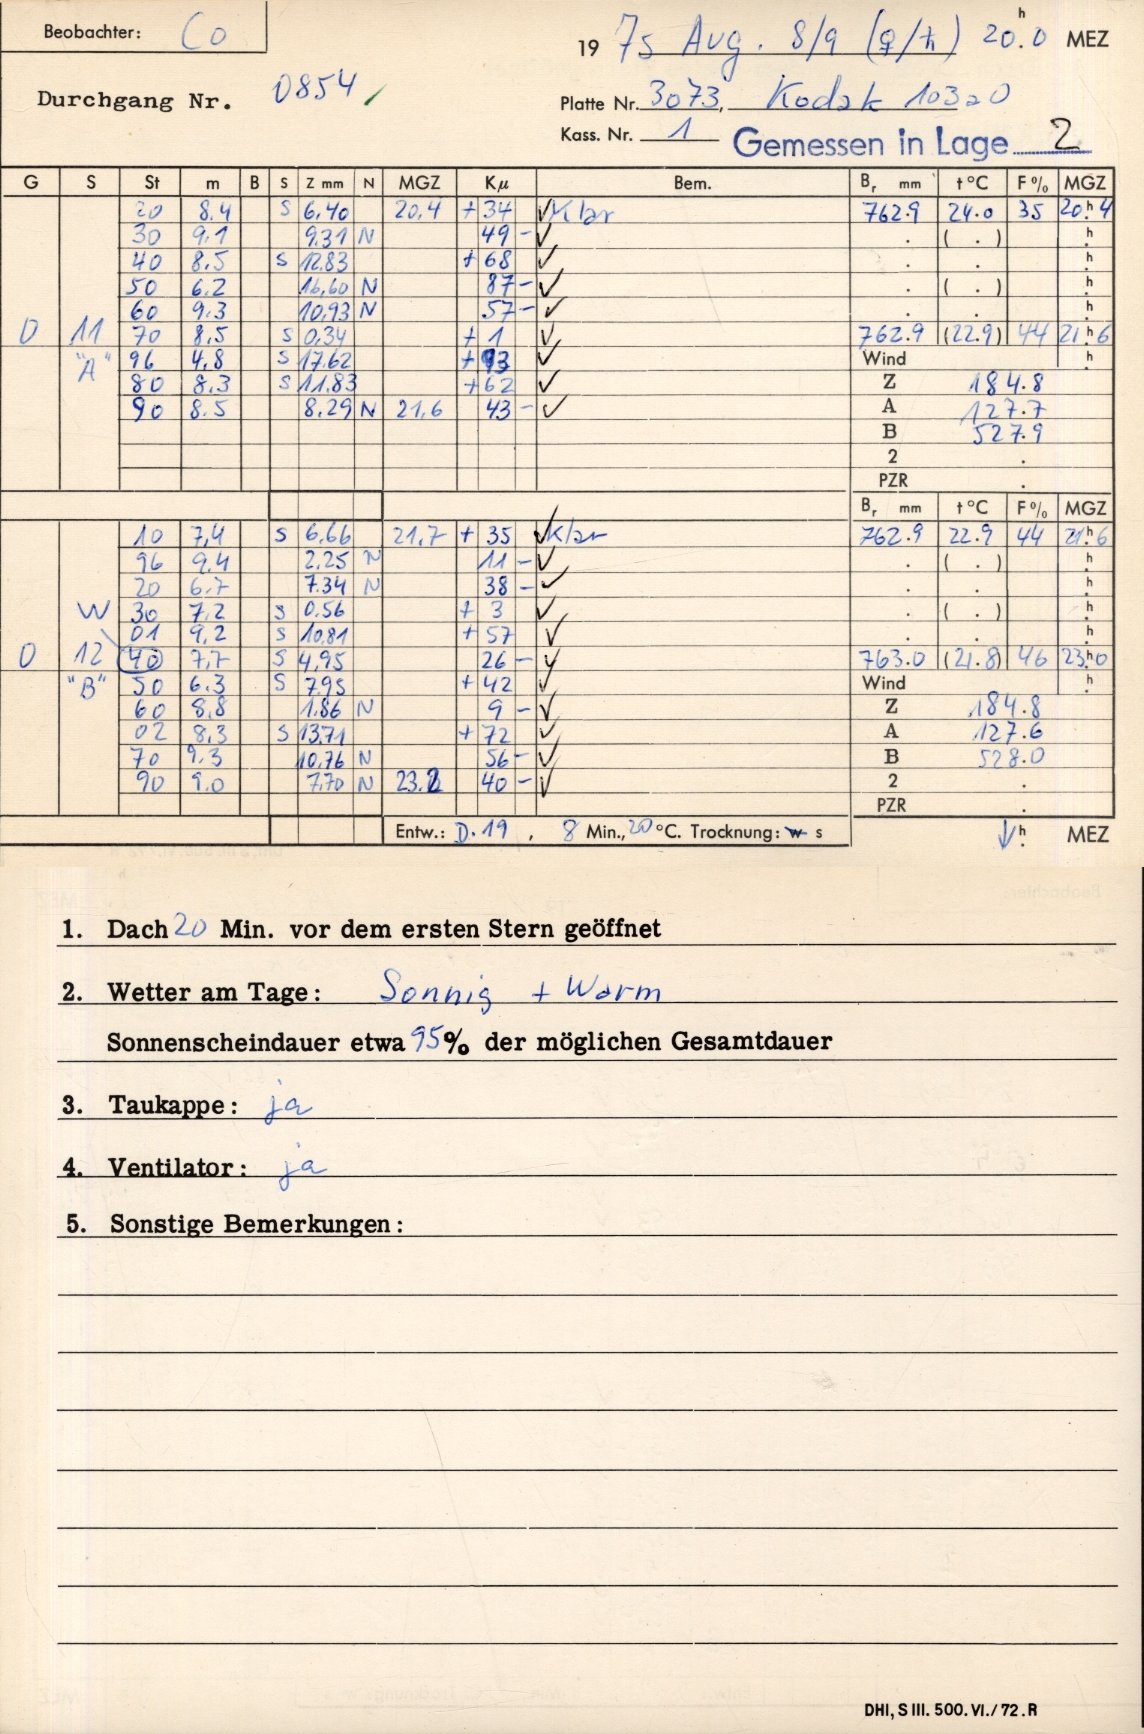 Beobachter: Co
19 75 Aug. 8/9 (♀/♄) 20.ʰ0 MEZ
Durchgang Nr. 0854
Platte Nr. 3073, Kodak 103a0
Kass. Nr. 1 Gemessen in Lage 2
G S St m B S Z mm N MGZ Kμ Bem. Bᵣ mm t°C F% MGZ
20 8.4 S 6,40 20,4 + 34 ✓ Klar 762.9 24.0 35 20.ʰ4
30 9.1 9.31 N 49 - ✓ . ( . ) ʰ.
40 8.5 S 12.83 + 68 ✓ . . ʰ.
50 6.2 16,60 N 87 - ✓ . ( . ) ʰ.
60 9.3 10,93 N 57 - ✓ . . ʰ.
0 11 70 8,5 S 0,34 + 1 ✓ 762.9 (22.9) 44 21.ʰ6
"A" 96 4,8 S 17.62 + 93 ✓ Wind ʰ.
80 8,3 S 11.83 + 62 ✓ Z 184.8
90 8.5 8,29 N 21,6 43 - ✓ A 127.7
B 527.9
2 .
PZR .
Bᵣ mm t°C F% MGZ
10 7,4 S 6,66 21,7 + 35 ✓ Klar 762.9 22.9 44 21.ʰ6
96 9,4 2,25 N 11 - ✓ . ( . ) ʰ.
20 6,7 7.34 N 38 - ✓ . . ʰ.
W 30 7,2 S 0.56 + 3 ✓ . ( . ) ʰ.
01 9,2 S 10,81 + 57 ✓ . . ʰ.
0 12 40 7,7 S 4,95 26 - ✓ 763.0 (21.8) 46 23.ʰ0
"B" 50 6.3 S 7.95 + 42 ✓ Wind ʰ.
60 8,8 1.86 N 9 - ✓ Z 184.8
02 8,3 S 13.71 + 72 ✓ A 127.6
70 9,3 10,76 N 56 - ✓ B 528.0
90 9.0 7,70 N 23.2 40 - ✓ 2 .
PZR .
Entw.: D.19 , 8 Min., 20 °C. Trocknung: w s ʰ. MEZ
1. Dach 20 Min. vor dem ersten Stern geöffnet
2. Wetter am Tage: Sonnig + Warm
Sonnenscheindauer etwa 95% der möglichen Gesamtdauer
3. Taukappe: ja
4. Ventilator: ja
5. Sonstige Bemerkungen:
DHI, S III. 500. VI./72. R